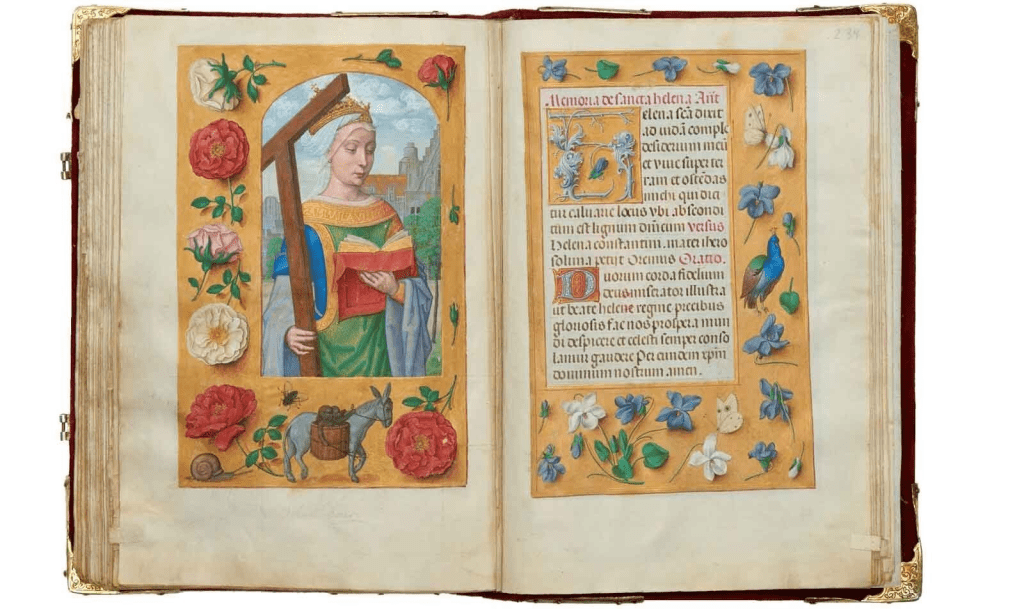 234
Memoria de sancta helena Ant̄
Helena scā dixit
ad iudā comple
desiderium meū
et viue super ter
ram et ostēdas
michi qui dici
tur caluarie locus vbi abscondi
tum est lignum dn̄icum versus
Helena constantini mater ihero
solima petijt Oremus Oratio.
Duorum corda fidelium
deus miserator illustra
ut beate helene regine precibus
gloriosis fac nos prospera mun
di despicere et celesti semper conso
gaudere Per eundem xp̄m
dominum nostrum amen.